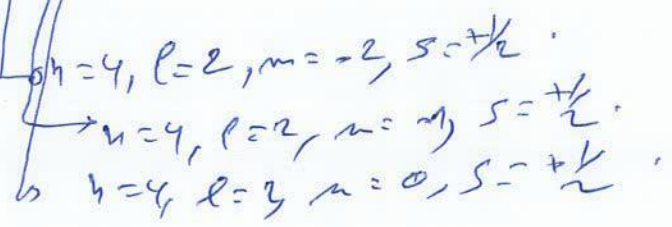 n=4, l=2, m=-2, s=+1/2.
n=4, l=2, m=-1, s=+1/2.
n=4, l=2, m=0, s=+1/2.